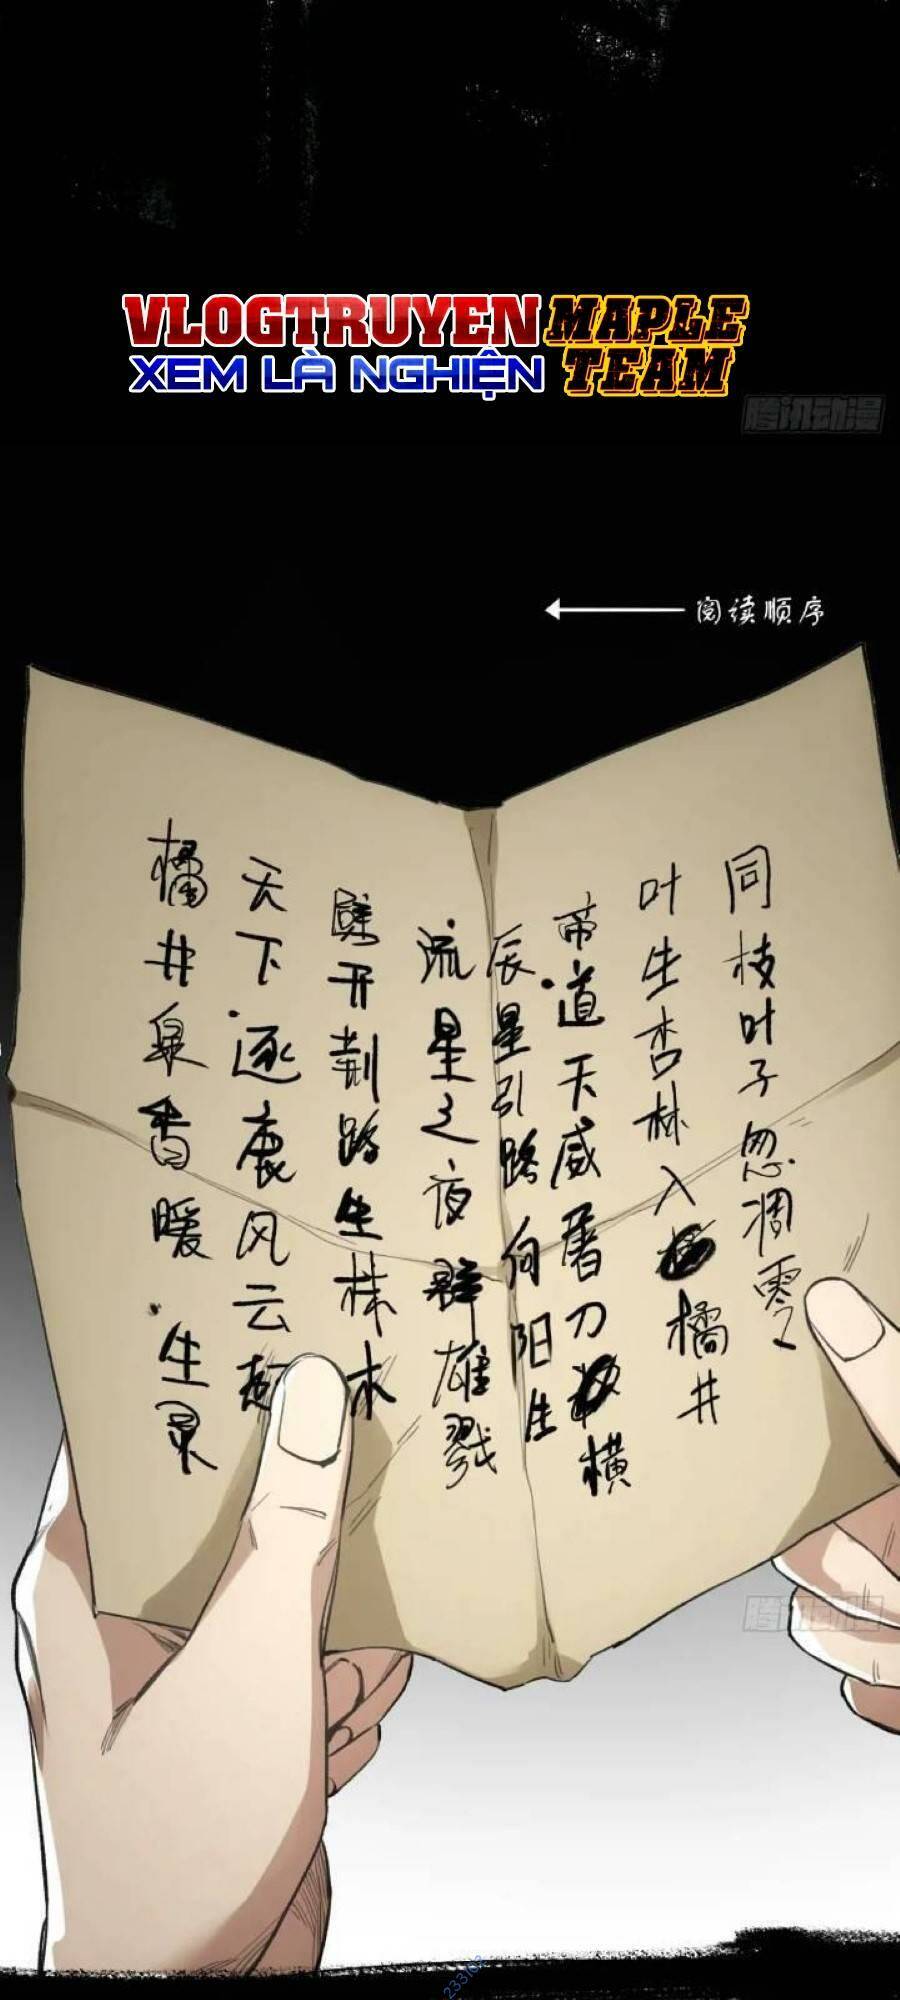 VLOGTRUYEN
XEM LÀ NGHIỆN
MAPLE
TEAM
腾讯动漫
阅读顺序
同枝叶子忽凋零
叶生杏林入橘井
帝道天威屠刀横
辰星引路向阳生
流星之夜群雄戮
劈开荆路生株木
天下逐鹿风云起
橘井泉香暖生灵
233102